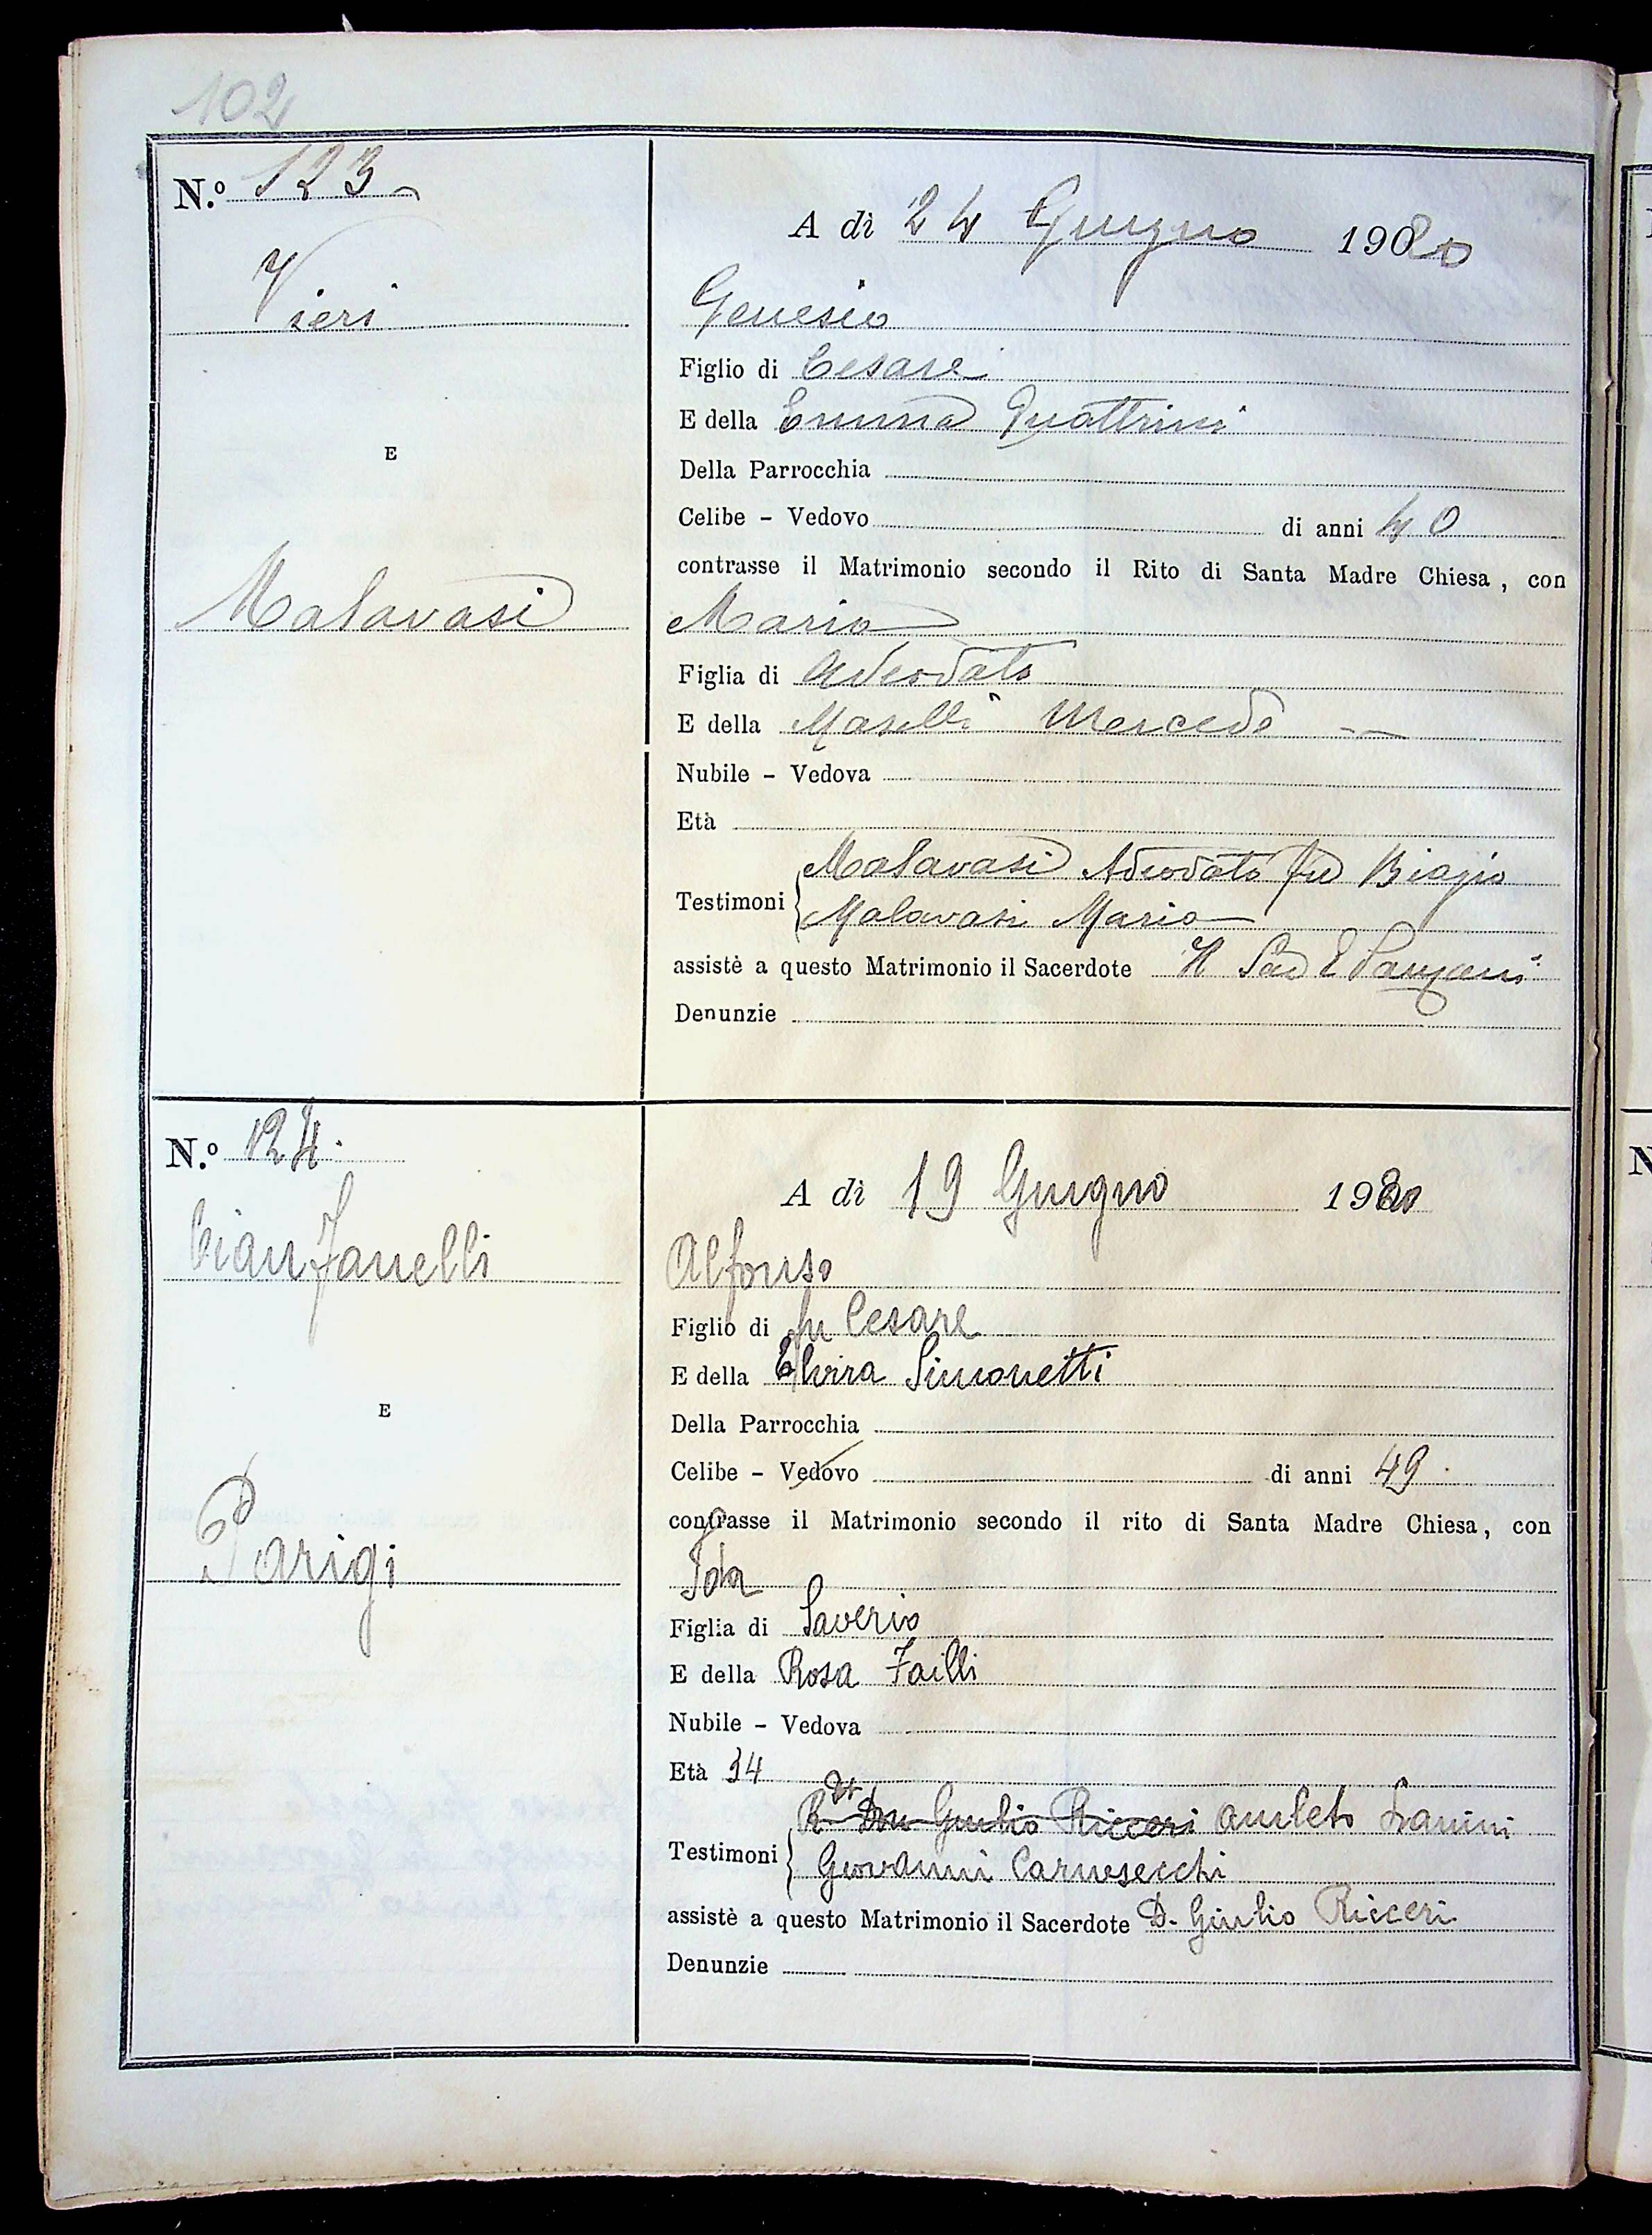 102
N.º 123
Vieri
E
Malavasi
A dì 24 Giugno 1920
Genesio
Figlio di Cesare
E della Emma Quattrini
Della Parrocchia
Celibe - Vedovo di anni 40
contrasse il Matrimonio secondo il Rito di Santa Madre Chiesa, con
Maria
Figlia di Adeodato
E della Maselli Mercede
Nubile - Vedova
Età
Testimoni { Malavasi Adeodato fu Biagio
Malavasi Mario
assistè a questo Matrimonio il Sacerdote
Denunzie
N.º 124.
Cianfanelli
E
Parigi
A dì 19 Giugno 1920
Alfonso
Figlio di fu Cesare
E della Elvira Simonetti
Della Parrocchia
Celibe - Vedovo di anni 49.
contrasse il Matrimonio secondo il rito di Santa Madre Chiesa, con
Ida
Figlia di Saverio
E della Rosa Failli
Nubile - Vedova
Età 34
Testimoni { R Don Giulio Ricceri Amleto Lanini
Giovanni Carnesecchi
assistè a questo Matrimonio il Sacerdote D. Giulio Ricceri
Denunzie